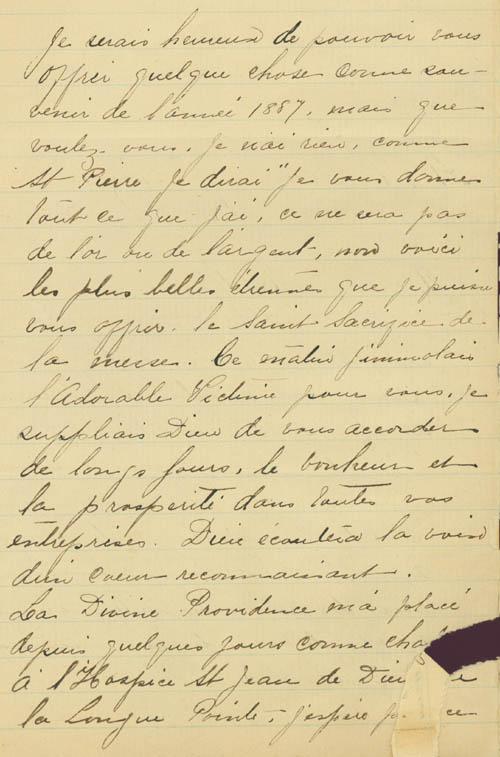 Je serais heureux de pouvoir vous
offrir quelque chose comme sou-
venir de l'année 1887, mais que
voulez vous, je n'ai rien, comme
St Pierre je dirai "Je vous donne
tout ce que j'ai, ce ne sera pas
de l'or ou de l'argent, non voici
les plus belles étrennes que je puisse
vous offrir. le Saint Sacrifice de
la messe. Ce matin j'immolais
l'Adorable Victime pour vous, je
suppliais Dieu de vous accorder
de longs jours, le bonheur et
la prosperité dans toutes vos
entreprises. Dieu écoutera la voix
d'un coeur reconnaissant.
La Divine Providence m'a placé
depuis quelques jours comme
à l'Hospice St Jean de Dieu
la Longue Pointe, j'espère